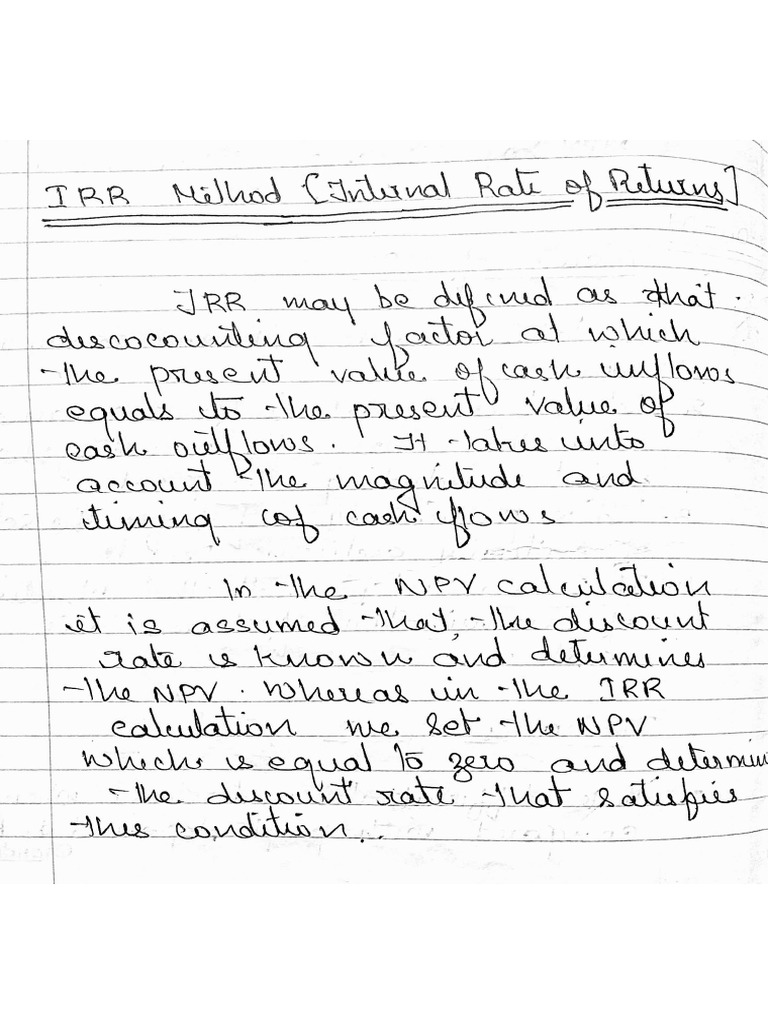 IRR Method [Internal Rate of Returns]
IRR may be defined as that
discocounting factor at which
the present value of cash inflows
equals to the present value of
cash outflows. It takes into
account the magnitude and
timing of cash flows
In the NPV calculation
it is assumed that, the discount
rate is known and determines
the NPV. Whereas in the IRR
calculation we set the NPV
which is equal to zero and determin
the discount rate that satisfies
this condition..